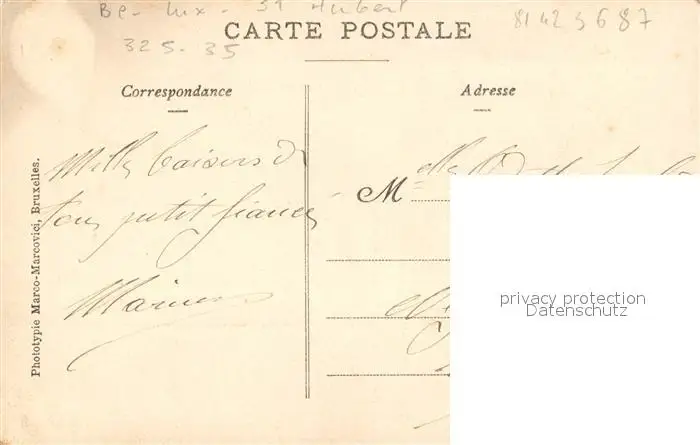 Be- Lux - St Hubert
81423687
CARTE POSTALE
325.35
Correspondance
Adresse
Mille baisers de
ton petit fiancé
M elle
privacy protection
Datenschutz
Phototypie Marco-Marcovici, Bruxelles.